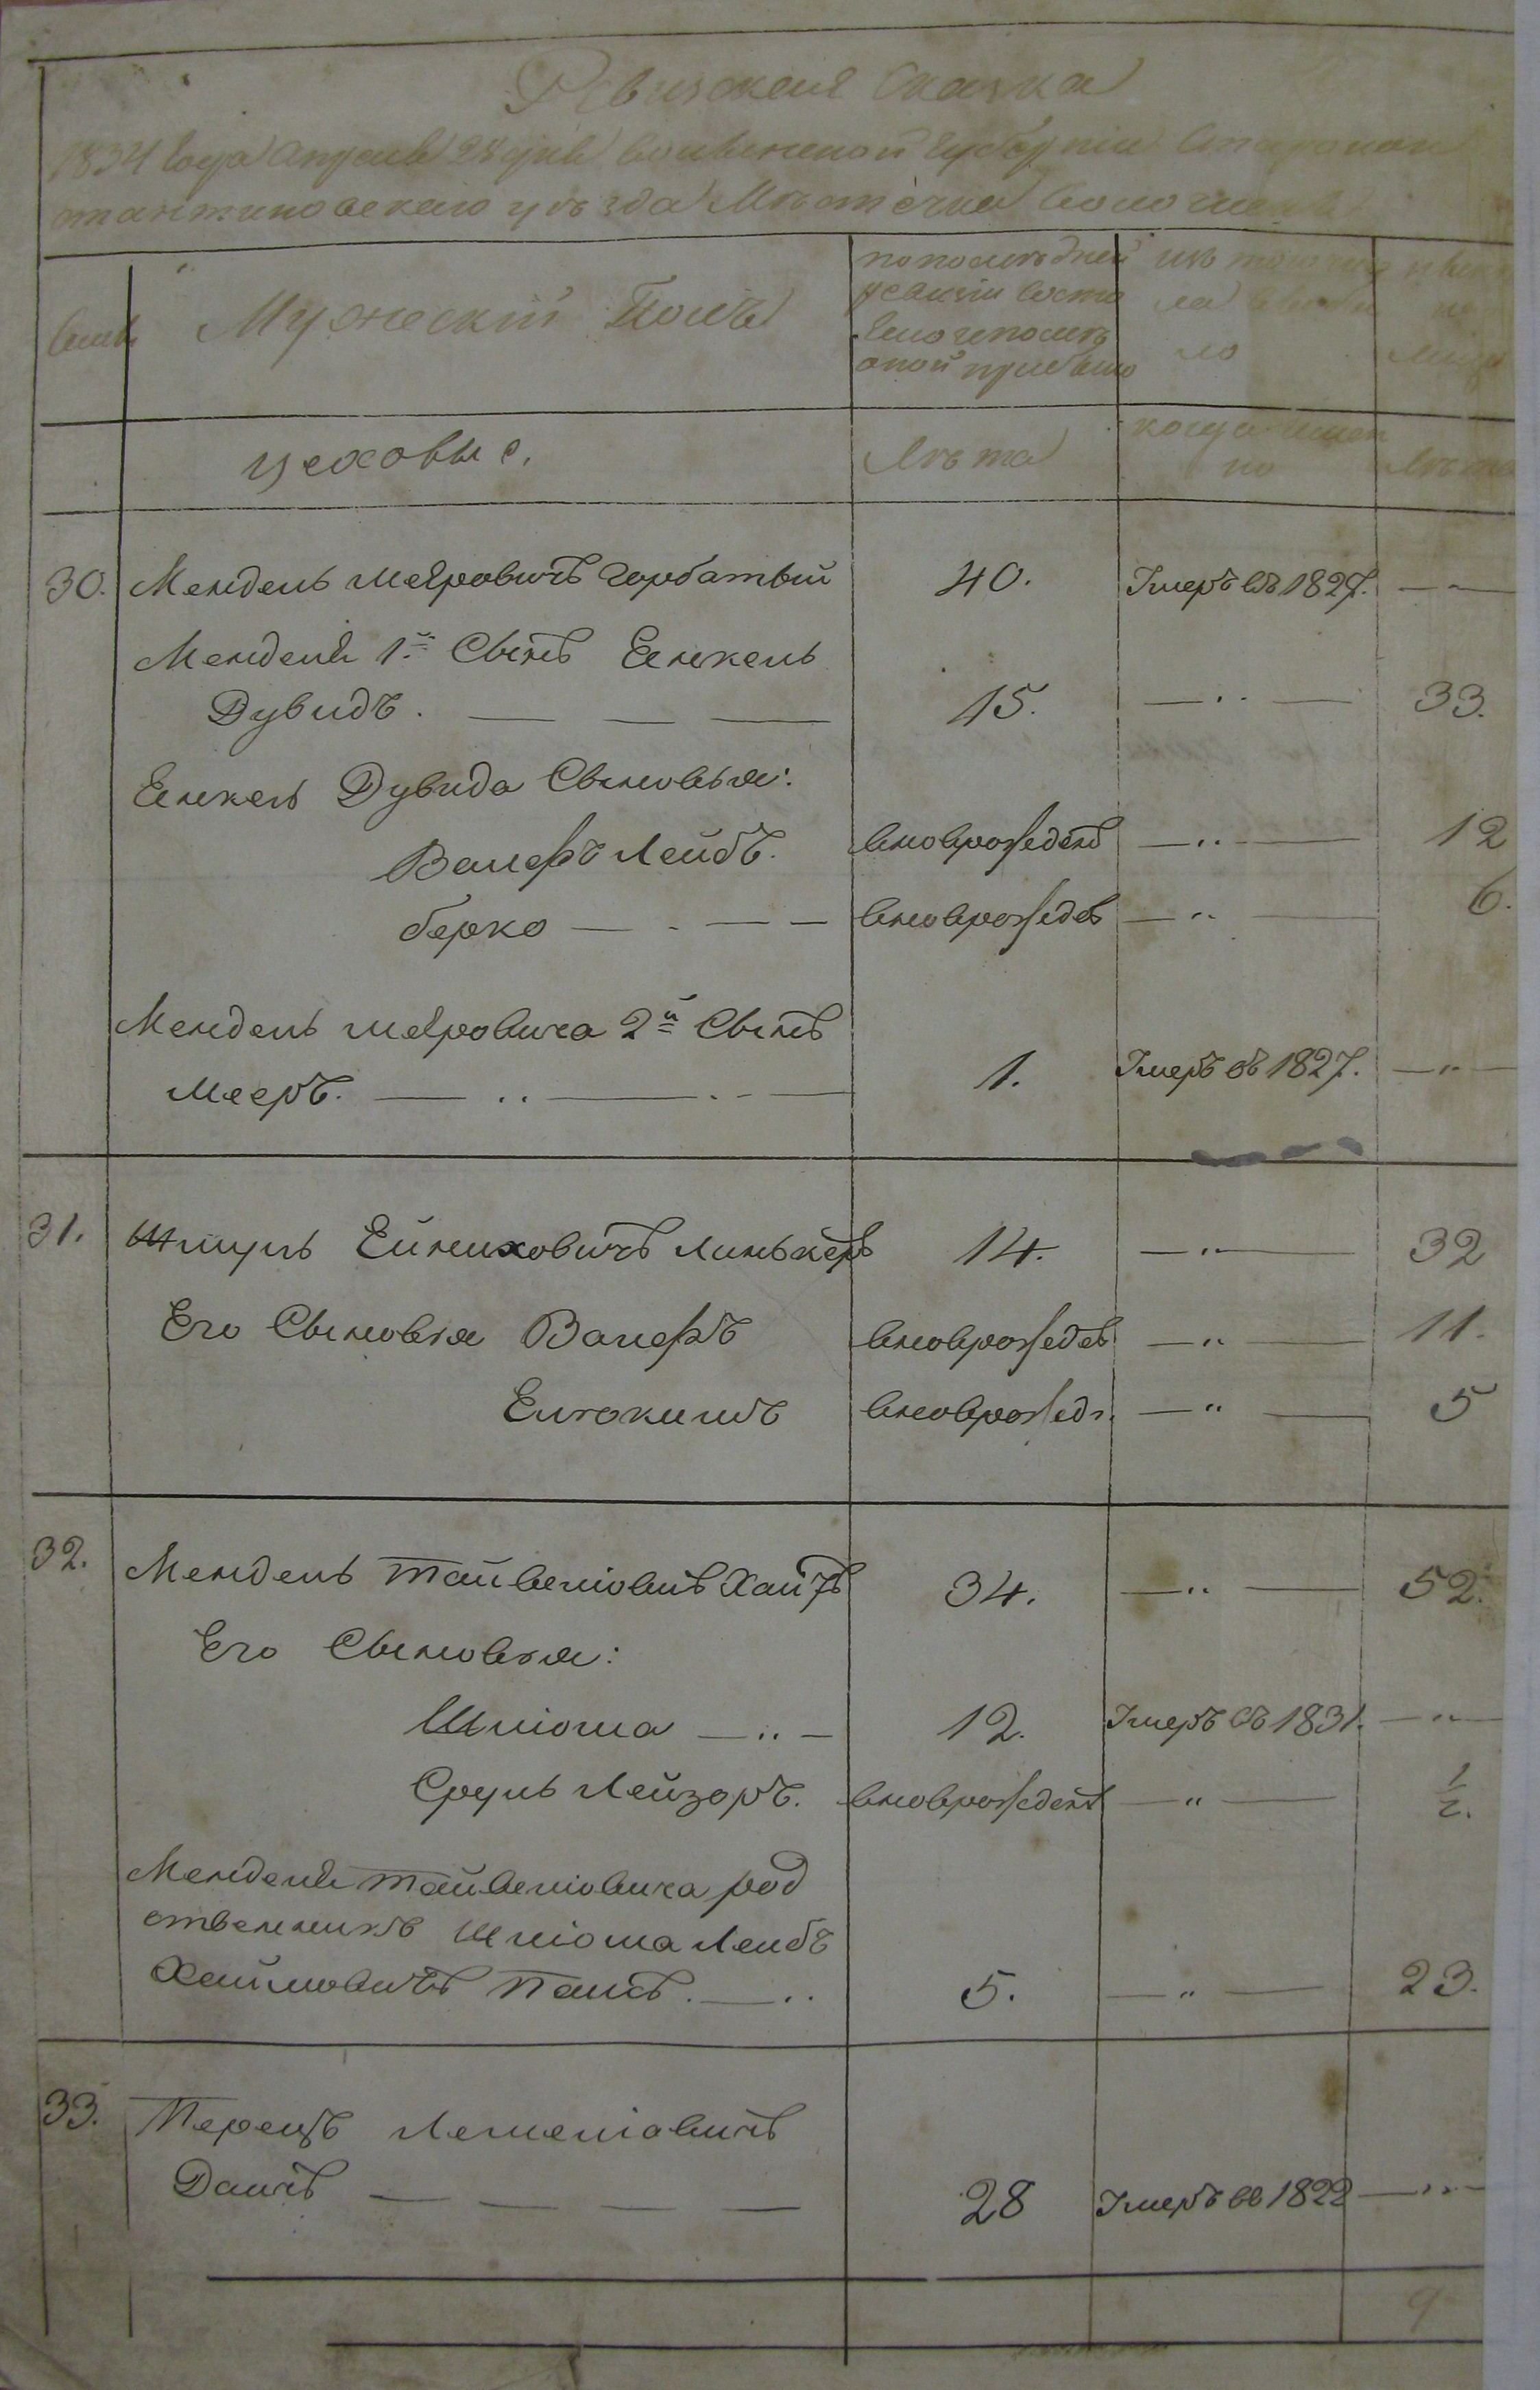 Ревизская Сказка
1834 года Апреля 28 дня Волынской Губернiи Старокон
стантиновскаго уѣзда Мѣстечка Волочискъ
Мужескiй Полъ
по послѣдней
ревизiи состо
яло и послѣ
оной прибыло
изъ того чис
ла выбы
ло
нынѣ
на
лицо
цеховые.
Лѣта
когда имен
но
Лѣта
30. Мендель Меэровичъ Горбатый 40. Умеръ въ 1827. — —
Менделя 1й Сынъ Еянкель
Дувидъ. — — — 15. — " — 33.
Еянкель Дувида Сыновья:
Волефъ Лейбъ. вновърожденъ — " — 12
Берко — - — — вновърожден — " — 6.
Мендель Меэровича 2й Сынъ
Мееръ. — " — " — 1. Умеръ въ 1827. — " —
31. Шмуль Ейниховичъ Линькеръ 14. — " — 32
Его Сыновья Волефъ вновърожден — " — 11.
Елюкимъ вновърожд. — " — 5
32. Мендель Тайвелiовичъ Хаитъ 34. — " — 52.
Его Сыновья:
Шлiома — " — 12. Умеръ въ 1831. — " —
Сруль Лейзоръ. вновърожденъ — " — 1/2.
Менделя Тайвелiовича род
ственникъ Шлiома Лейбъ
Хаимовичъ Папъ. — " 5. — " — 23.
33. Перецъ Лемелiовичъ
Данъ — — — — 28 Умеръ въ 1822 — " —
9